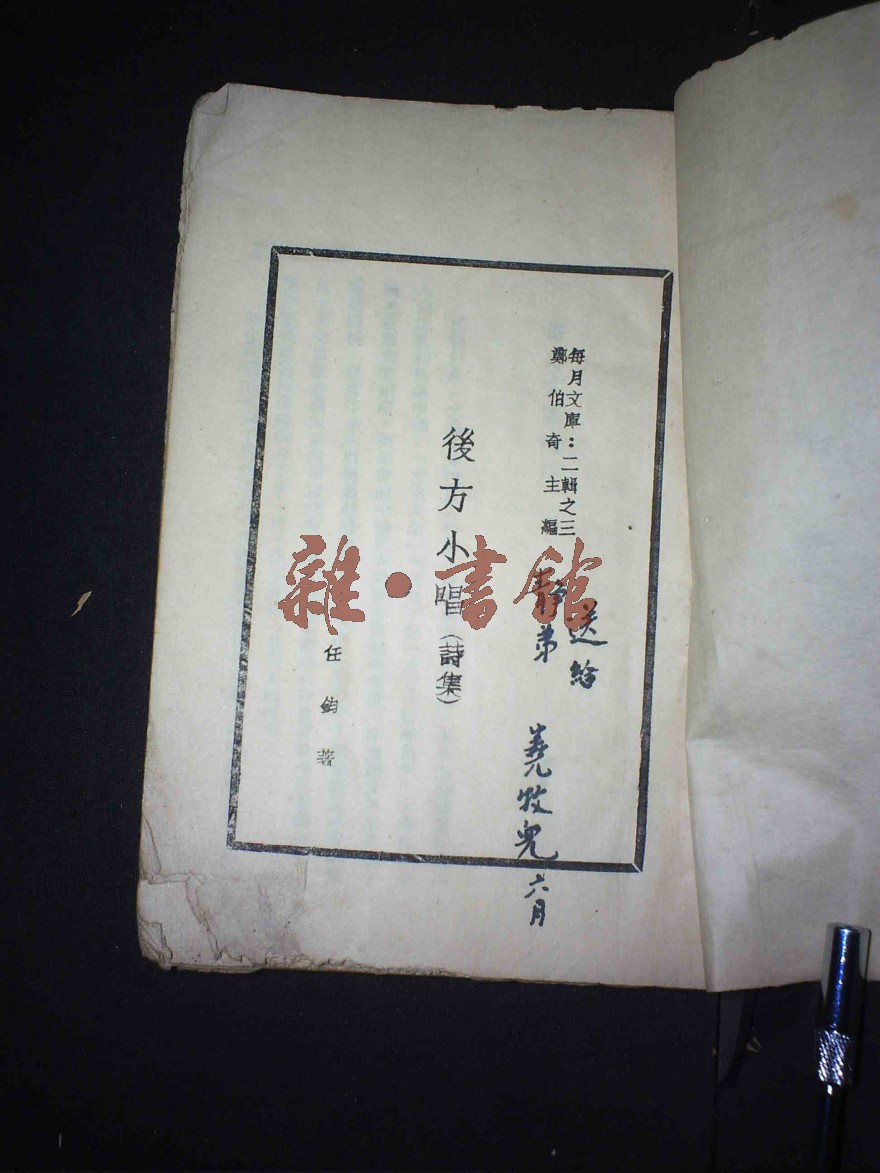 每月文庫：二輯之三
鄭伯奇主編
送給
弟
堯牧兒 六月
後方小唱（詩集）
任鈞著
雜·書館